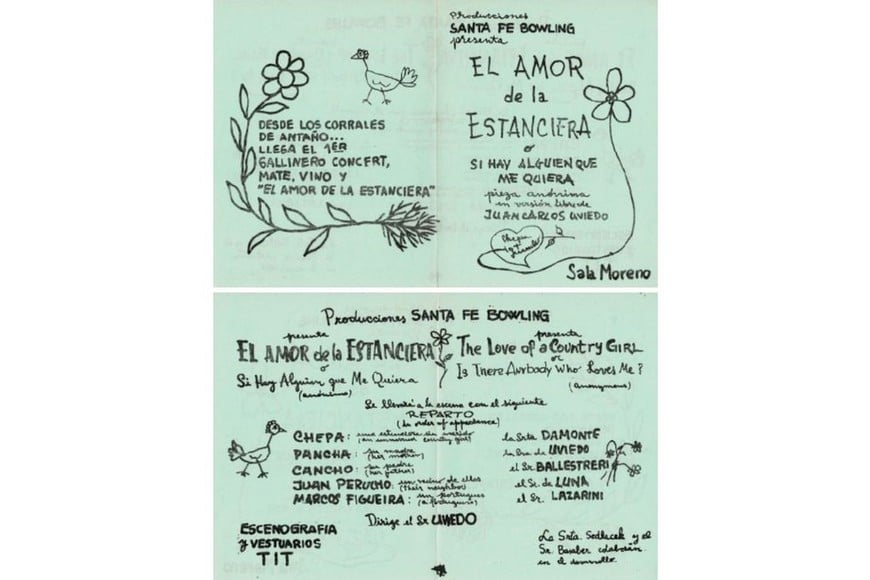 DESDE LOS CORRALES
DE ANTAÑO...
LLEGA EL 1ER
GALLINERO CONCERT,
MATE, VINO Y
"EL AMOR DE LA ESTANCIERA"
Producciones
SANTA FE BOWLING
presenta
EL AMOR
de la
ESTANCIERA
o
SI HAY ALGUIEN QUE
ME QUIERA
pieza anónima
en versión libre de
JUAN CARLOS UVIEDO
Chepa
y
Sala Moreno
Producciones SANTA FE BOWLING
presenta
EL AMOR de la ESTANCIERA
o
Si Hay Alguien que Me Quiera
(anónimo)
presenta
The Love of a Country GIRL
or
Is There Anybody Who Loves Me?
(anonymous)
Se llevará a la escena con el siguiente
REPARTO
(In order of appearance)
CHEPA: una estanciera sin marido la Srta DAMONTE
(an unmarried country girl)
PANCHA: su madre la Sra de UVIEDO
(her mother)
CANCHO: su padre el Sr. BALLESTRERI
(her father)
JUAN PERUCHO: un vecino de ellos el Sr. de LUNA
(their neighbor)
MARCOS FIGUEIRA: un portugues el Sr. LAZARINI
(a portuguese)
Dirige el Sr UVIEDO
ESCENOGRAFIA
y VESTUARIOS
TIT
La Srta. Sedlacek y el
Sr. Bamber colaboran
en el desarrollo.